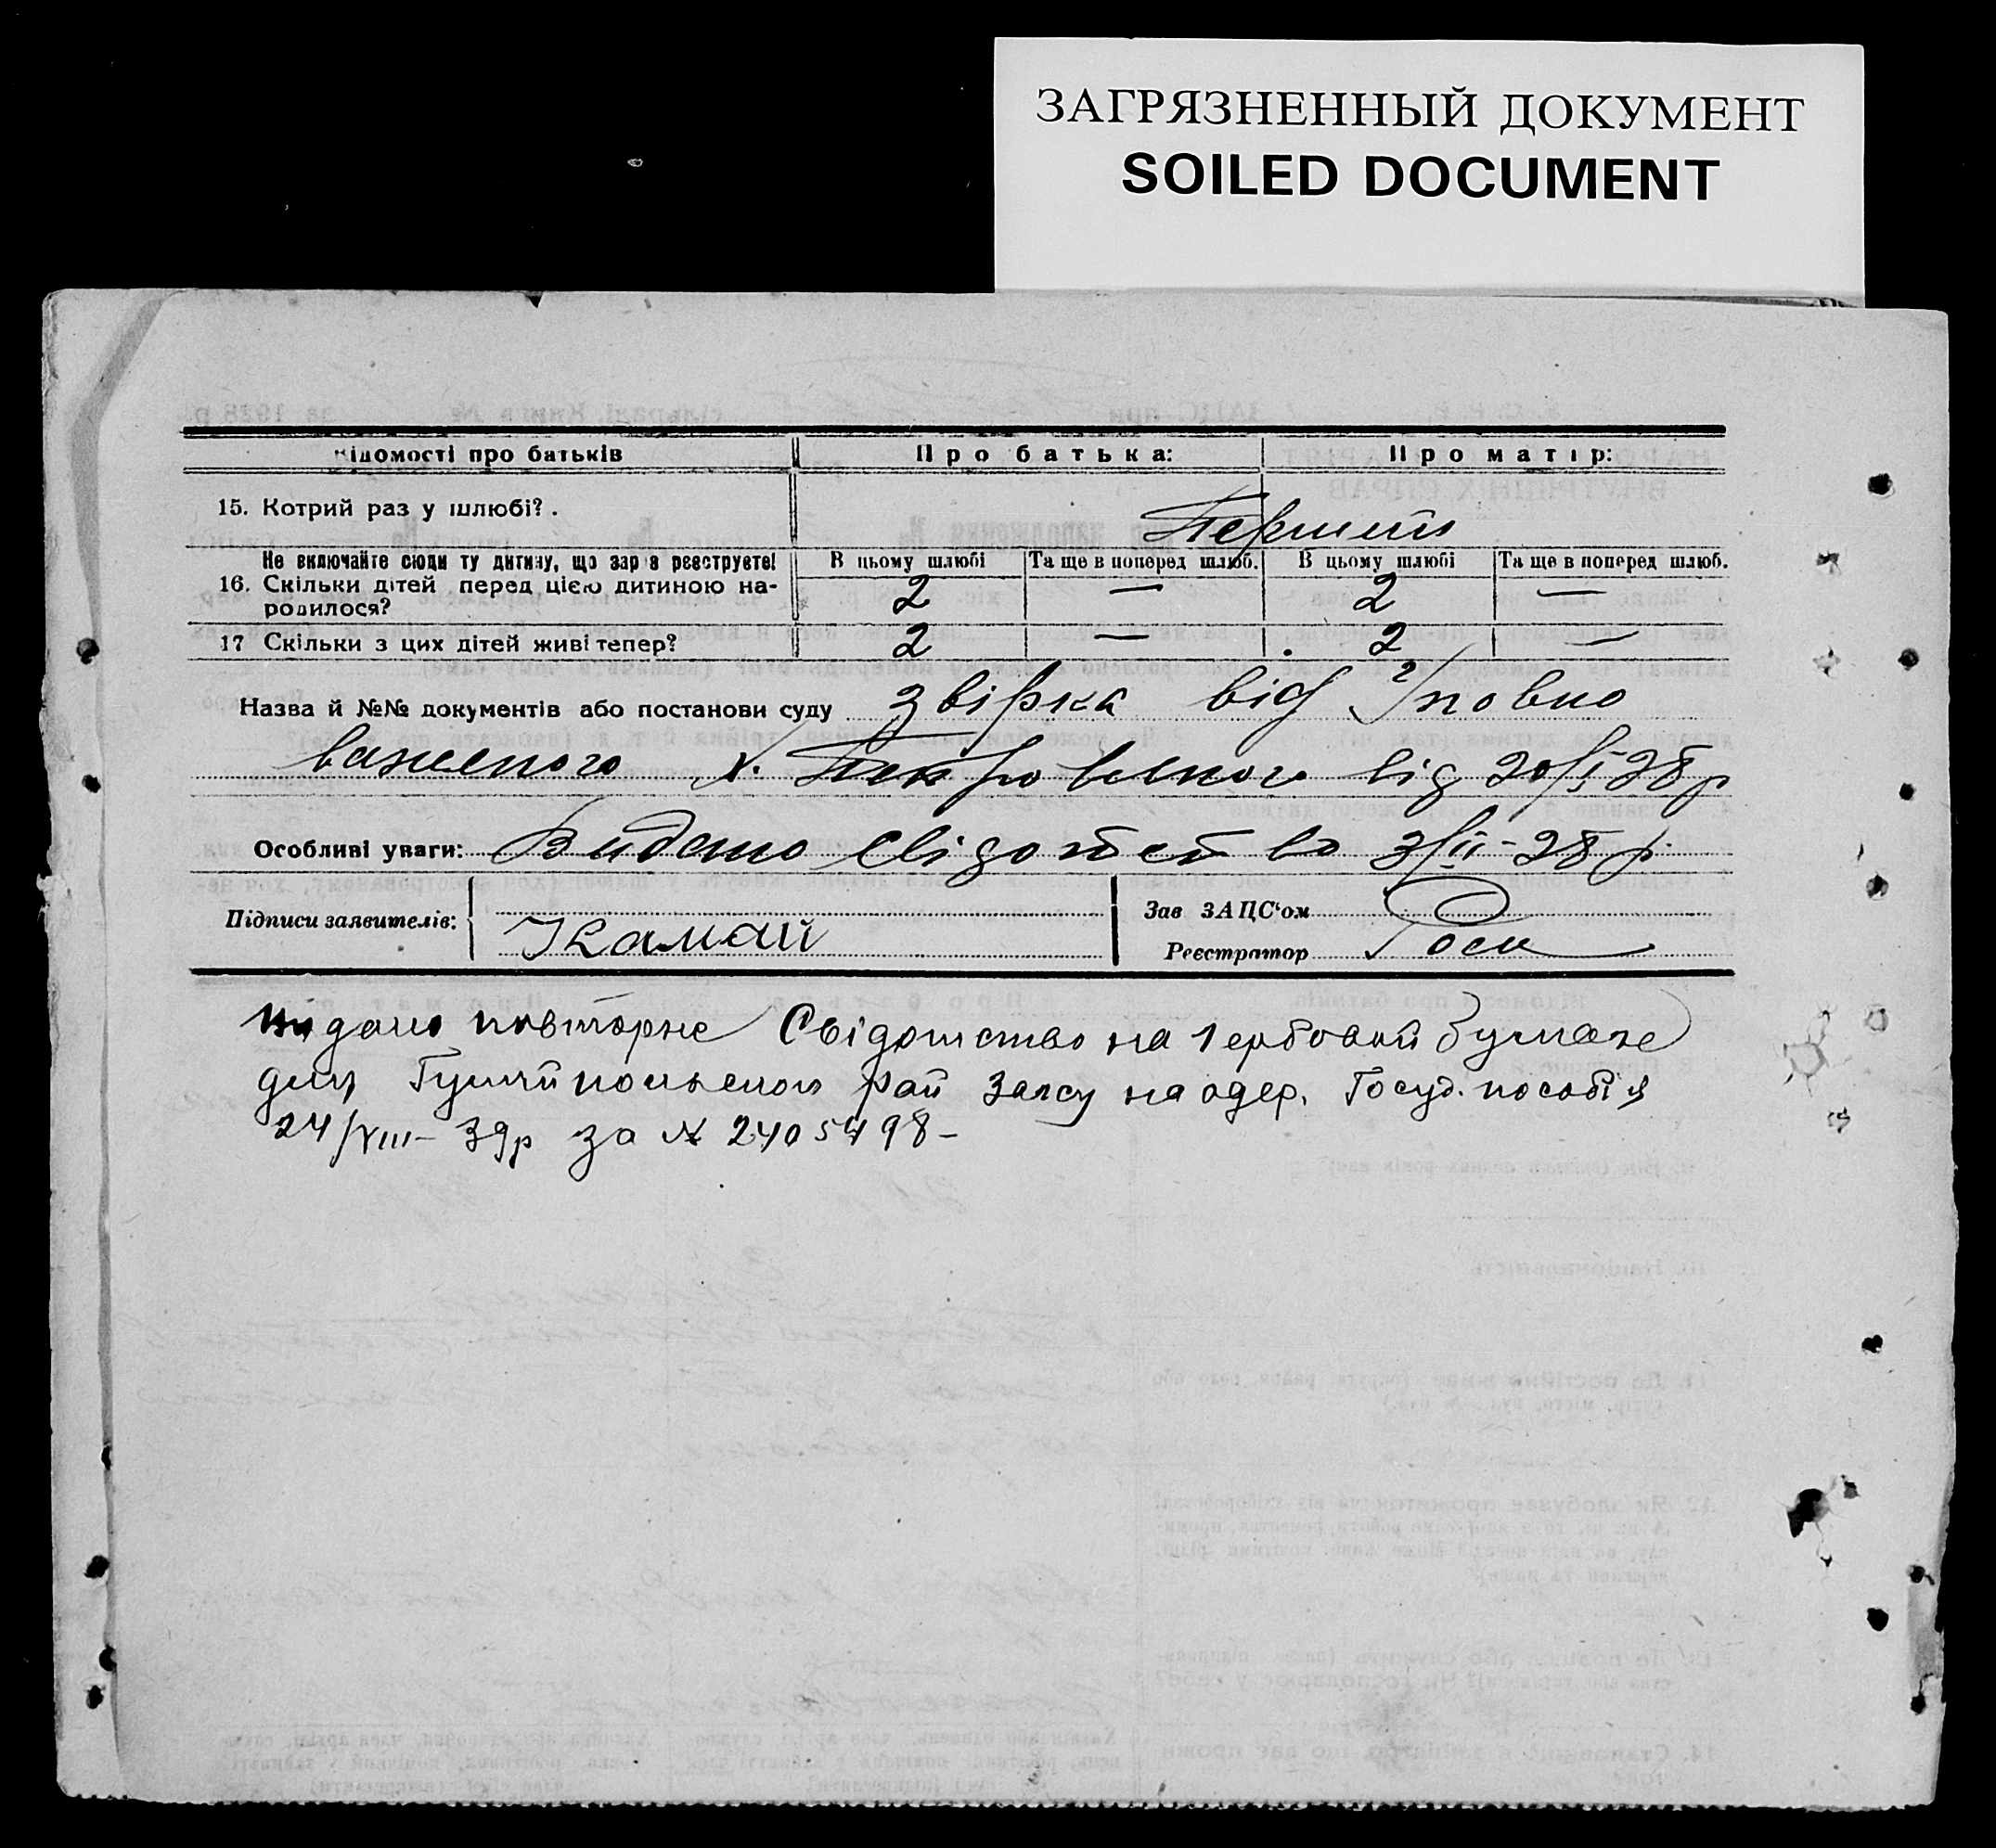 ЗАГРЯЗНЕННЫЙ ДОКУМЕНТ
SOILED DOCUMENT
Відомості про батьків Про батька: Про матір:
15. Котрий раз у шлюбі? . Перший
Не включайте сюди ту дитину, що зараз реєструєте! В цьому шлюбі Та ще в поперед шлюб. В цьому шлюбі Та ще в поперед шлюб.
16. Скільки дітей перед цією дитиною на-
родилося? 2 — 2 —
17 Скільки з цих дітей живі тепер? 2 — 2 —
Назва й №№ документів або постанови суду звірка від Уповно
важеного х. від 20/I-28р
Особливі уваги: Видано свідотство 3/II-28 р.
Підписи заявителів: Камай
Зав ЗАЦС'ом
Реєстратор
Видано повторне Свідотство на Гербовой бумазе
для Гуляйпольского рай Загсу на одер. Госуд. пособія
24/VIII-39р за № 2405498-